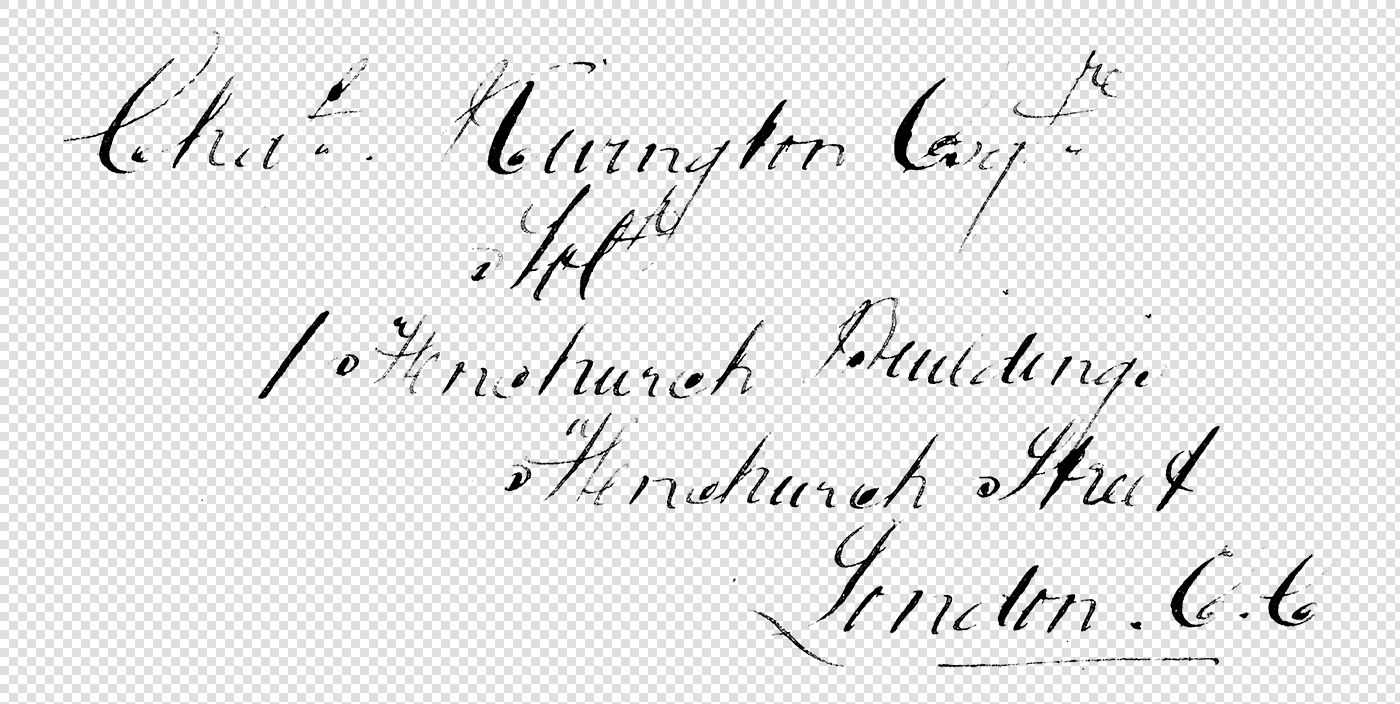 Chas. Newington Esqre
Solr
1 Fenchurch Buildings
Fenchurch Street
London. E.C